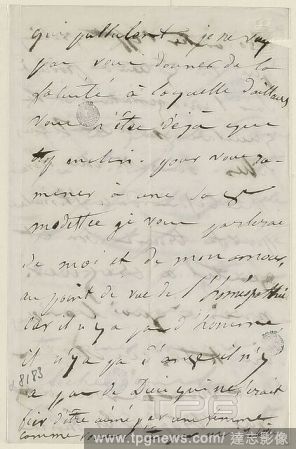 qui pullulent je ne veux
pas vous donner de la
fatuité à laquelle d'ailleurs
vous n'êtes déjà que
trop enclin. pour vous ra-
mener à une
modestie je vous parlerai
de moi et de mon amour,
au point de vue de l'homéopathie
Car il n'y a pas d'homme
il n'y a pas d' il n'y
a pas de Dieu qui ne serait
fier d'être aimé par une femme
comme
d 8183
TPG
www.tpgnews.com / 達志影像